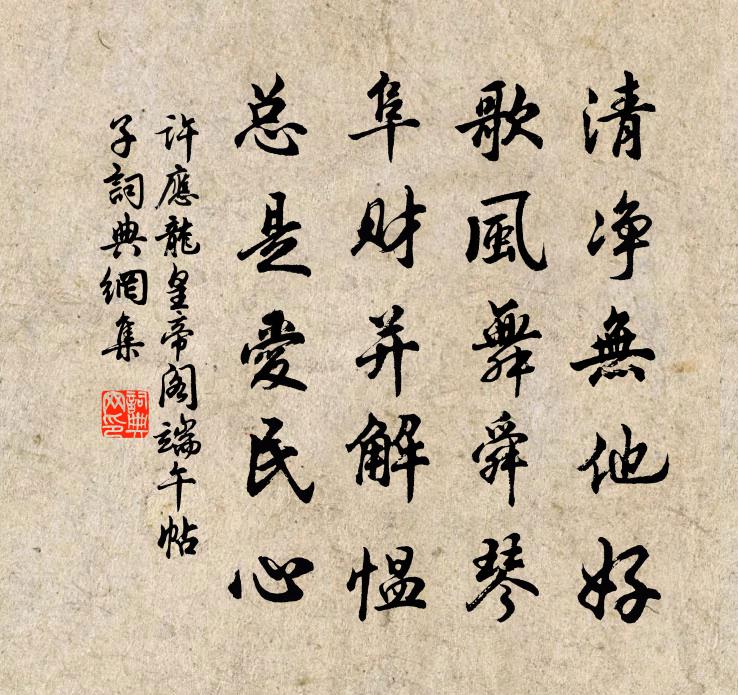 清净無他好
歌風舞舜琴
阜财并解愠
总是愛民心
許應龍皇帝阁端午帖
子詞典網集
詞典网印